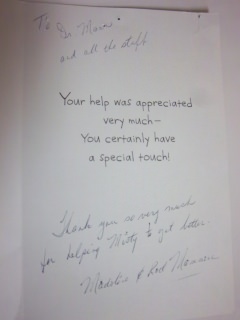 To Dr. Marie
and all the staff
Your help was appreciated
very much—
You certainly have
a special touch!
Thank you so very much
for helping Misty to get better.
Madolin & Rod